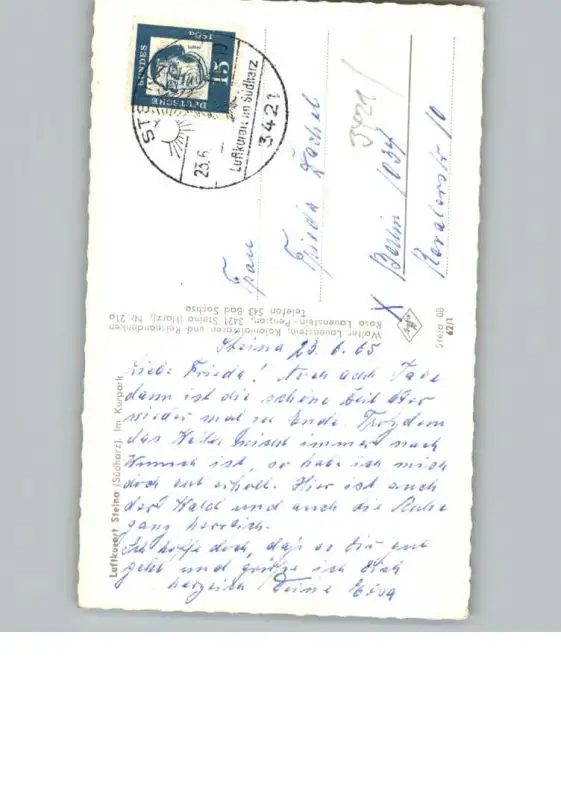 DEUTSCHE
BUNDES
15
Luftkurort im Südharz
3421
23.6.
Frau
Frieda
Berlin 1034
10
3421
Walter Lauenstein, Kolonialwaren und Reiseandenken
Rosa Lauenstein - Pension, 3421 Steina (Harz), Nr. 21a
Telefon 543 Bad Sachsa
Steia 08
62/1
Luftkurort Steina (Südharz). Im Kurpark
Steina 23.6.65
Liebe Frieda! Noch acht Tage
dann ist die schöne Zeit hier
wieder mal zu Ende. Trotzdem
das Wetter nicht immer nach
Wunsch ist, so habe ich mich
doch gut erholt. Hier ist auch
der Wald und auch die Ruhe
ganz herrlich.
Ich hoffe doch, daß es Dir gut
geht und grüße ich Dich
herzlich Deine